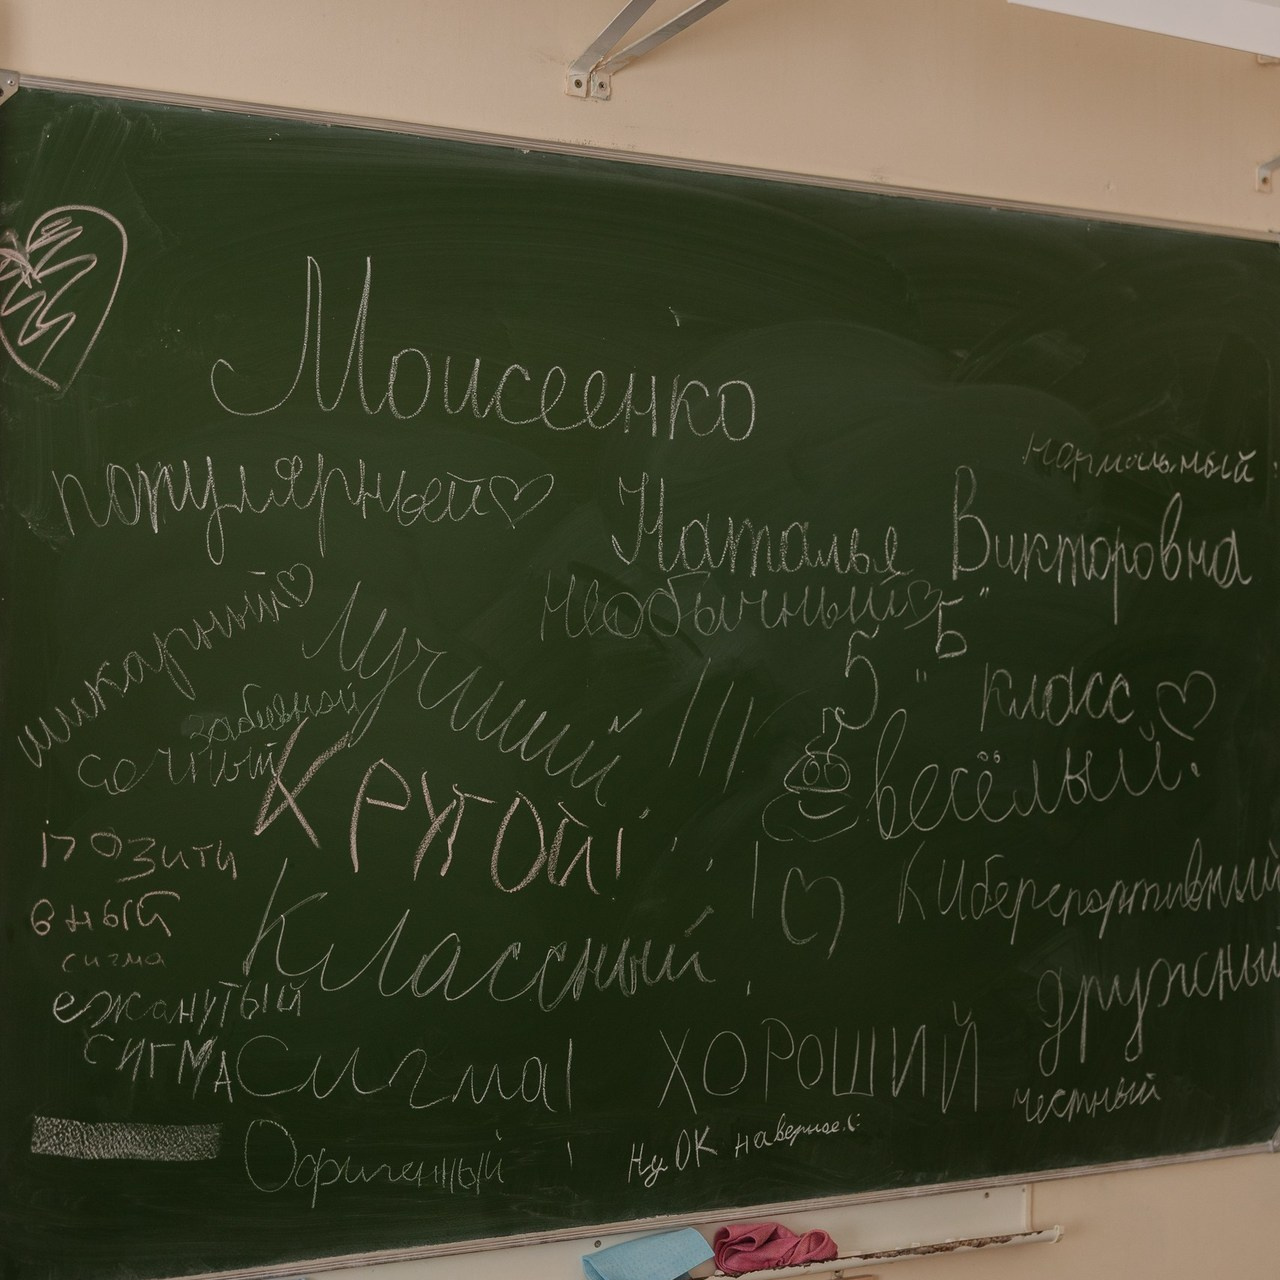 Моисеенко
нормальный
популярный
Наталья Викторовна
необычный
5 "Б"
класс
шикарный
Лучший
забивной
сочный
весёлый.
Крутой!
позити
вный
Киберспортивный
Классный
сигма
ежанутый
дружный
СИГМА
Сигма!
ХОРОШИЙ
честный
Офигенный !
Ну ОК наверное.(: